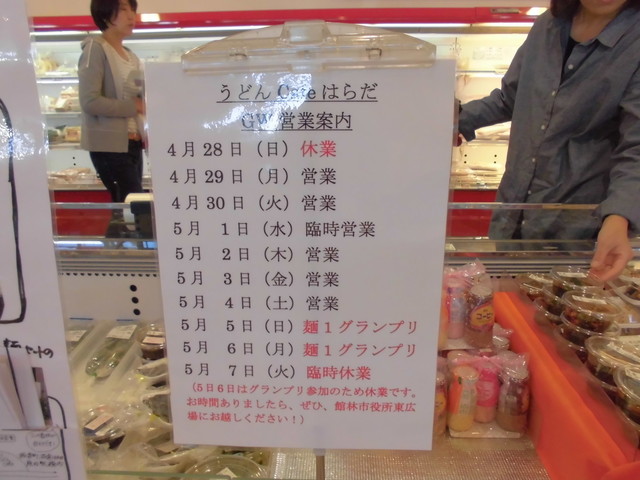 うどん Cafe はらだ
GW 営業案内
4月28日（日）休業
4月29日（月）営業
4月30日（火）営業
5月 1日（水）臨時営業
5月 2日（木）営業
5月 3日（金）営業
5月 4日（土）営業
5月 5日（日）麺1グランプリ
5月 6日（月）麺1グランプリ
5月 7日（火）臨時休業
（5日6日はグランプリ参加のため休業です。
お時間ありましたら、ぜひ、館林市役所東広
場にお越しください！）